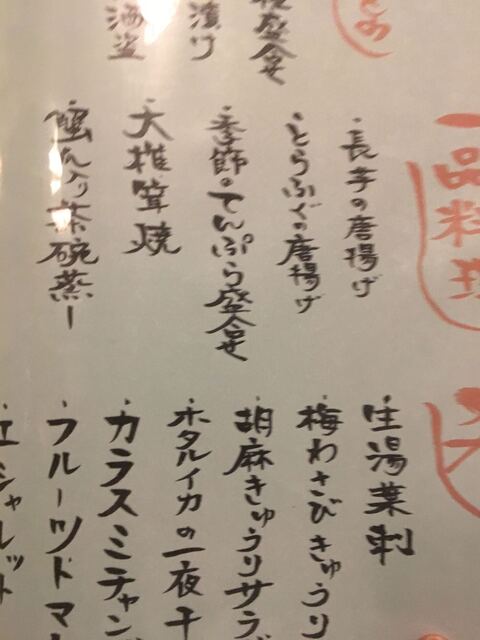 盛合せ
漬け
酒盗
一品料理
・長芋の唐揚げ
・とらふぐの唐揚げ
・季節のてんぷら盛合せ
・大椎茸焼
・蟹入り茶碗蒸し
・生湯葉刺
・梅わさびきゅうり
・胡麻きゅうりサラダ
・ホタルイカの一夜干
・カラスミチャン
・フルーツトマ
シャーレット